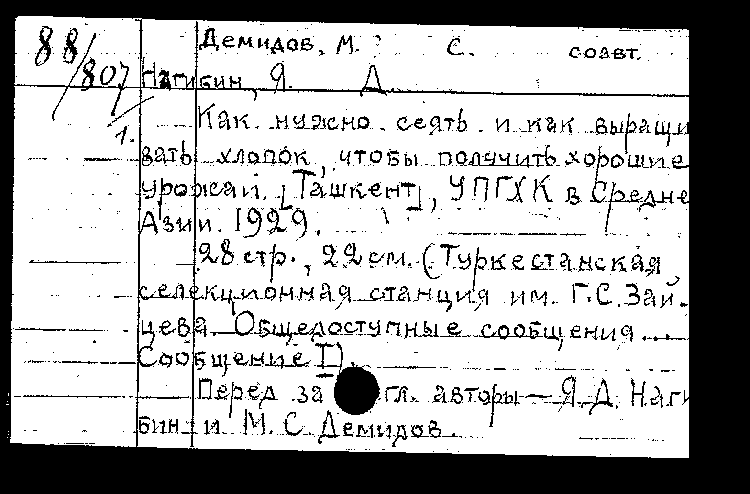 88/807
1.
Демидов, М. С. соавт.
Нагибин, Я. Д.
Как нужно сеять и как выращи
вать хлопок, чтобы получить хорошие
урожаи. [Ташкент], УПГХК в Средне
Азии. 1929.
28 стр., 22 см. (Туркестанская
селекционная станция им. Г.С. Зай-
цева. Общедоступные сообщения...
Сообщение I).
Перед загл. авторы — Я.Д. Наги
бин и М.С. Демидов.